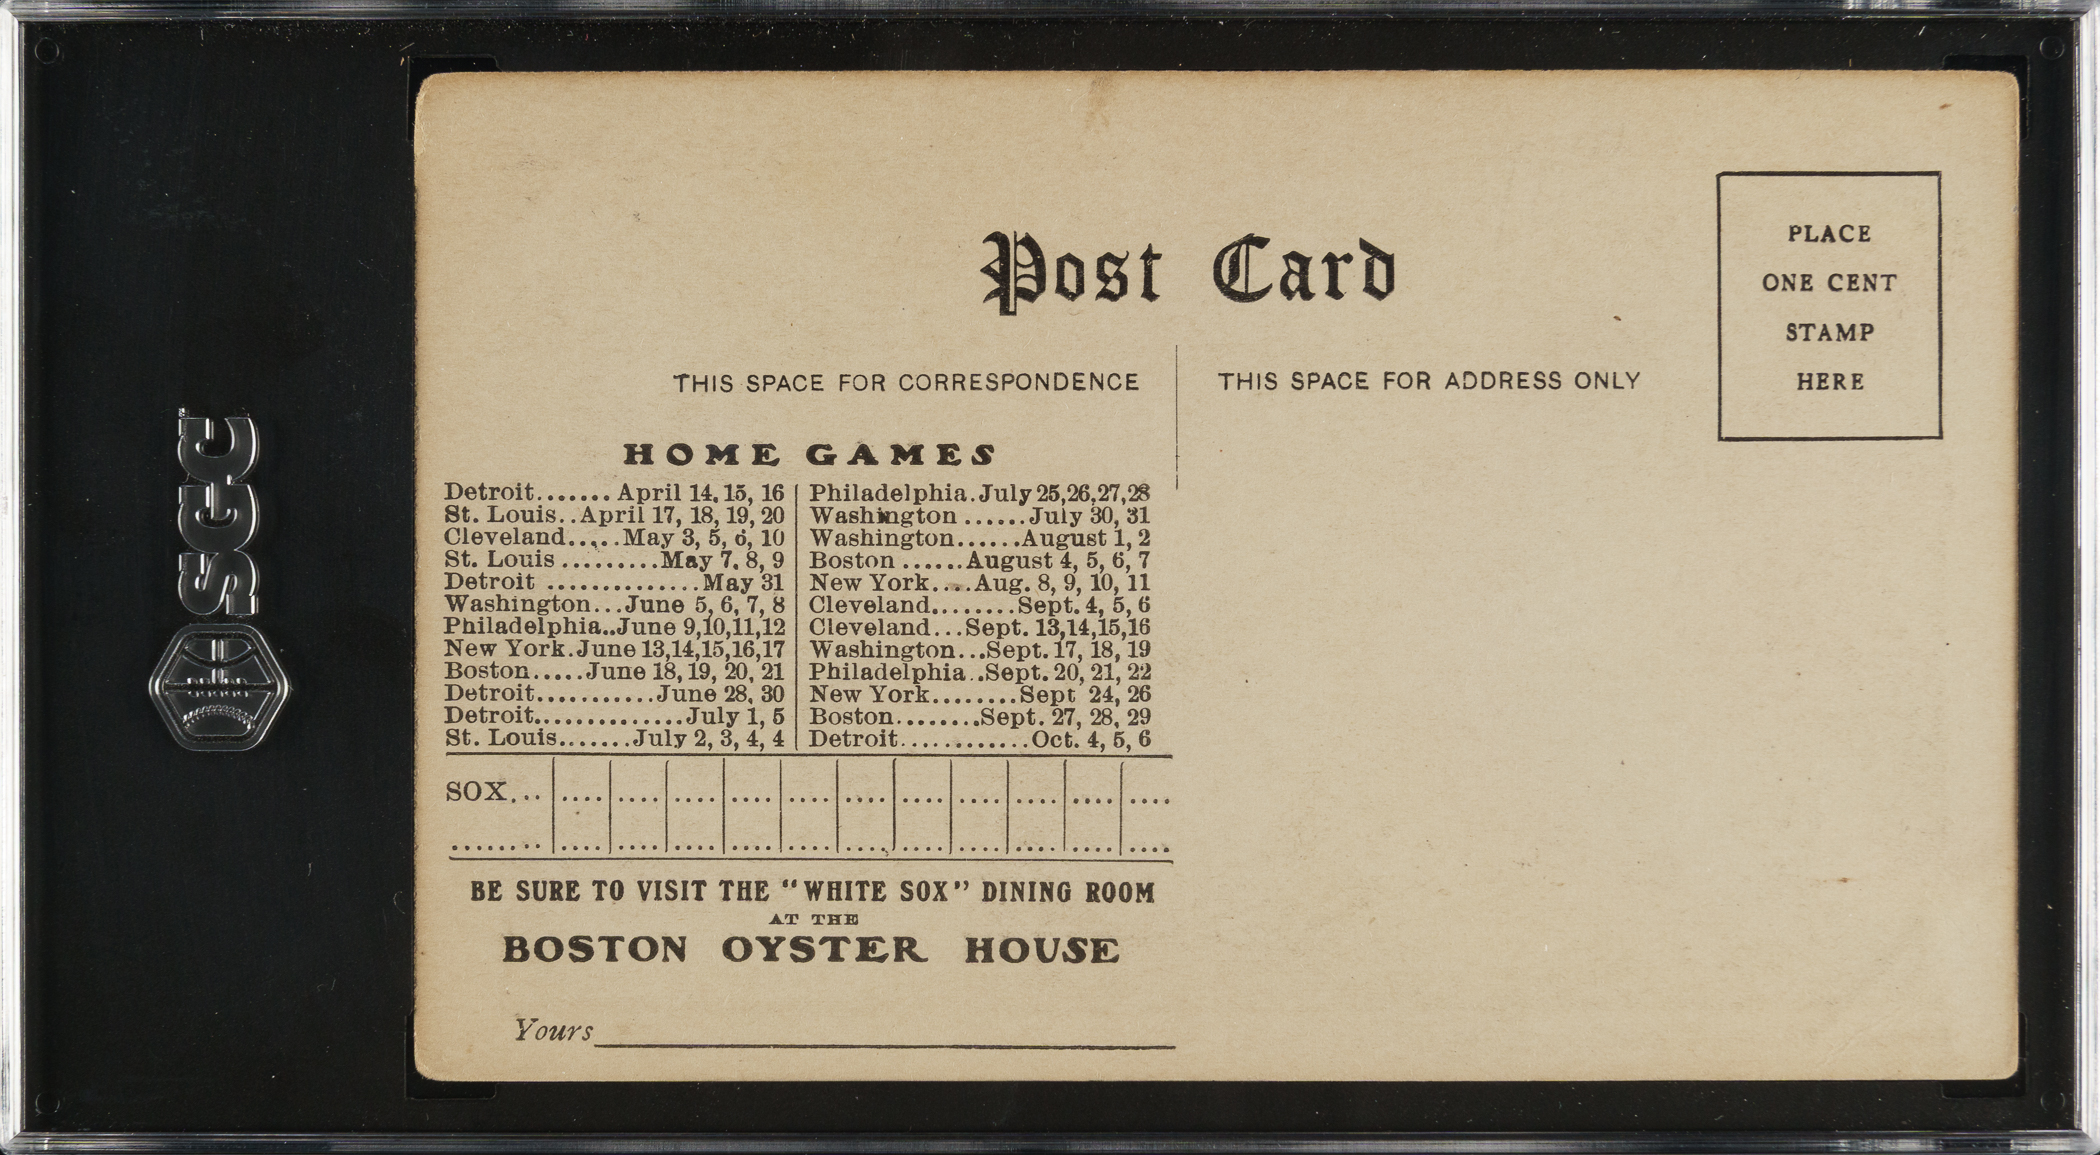 SGC
Post Card
PLACE
ONE CENT
STAMP
HERE
THIS SPACE FOR CORRESPONDENCE
THIS SPACE FOR ADDRESS ONLY
HOME GAMES
Detroit....... April 14, 15, 16
St. Louis..April 17, 18, 19, 20
Cleveland.....May 3, 5, 6, 10
St. Louis .........May 7, 8, 9
Detroit ..............May 31
Washington...June 5, 6, 7, 8
Philadelphia..June 9,10,11,12
New York.June 13,14,15,16,17
Boston.....June 18, 19, 20, 21
Detroit...........June 28, 30
Detroit..............July 1, 5
St. Louis.......July 2, 3, 4, 4
Philadelphia.July 25,26,27,28
Washington ......July 30, 31
Washington......August 1, 2
Boston ......August 4, 5, 6, 7
New York....Aug. 8, 9, 10, 11
Cleveland........Sept. 4, 5, 6
Cleveland...Sept. 13,14,15,16
Washington...Sept. 17, 18, 19
Philadelphia..Sept. 20, 21, 22
New York........Sept 24, 26
Boston........Sept. 27, 28, 29
Detroit............Oct. 4, 5, 6
SOX...
BE SURE TO VISIT THE "WHITE SOX" DINING ROOM
AT THE
BOSTON OYSTER HOUSE
Yours